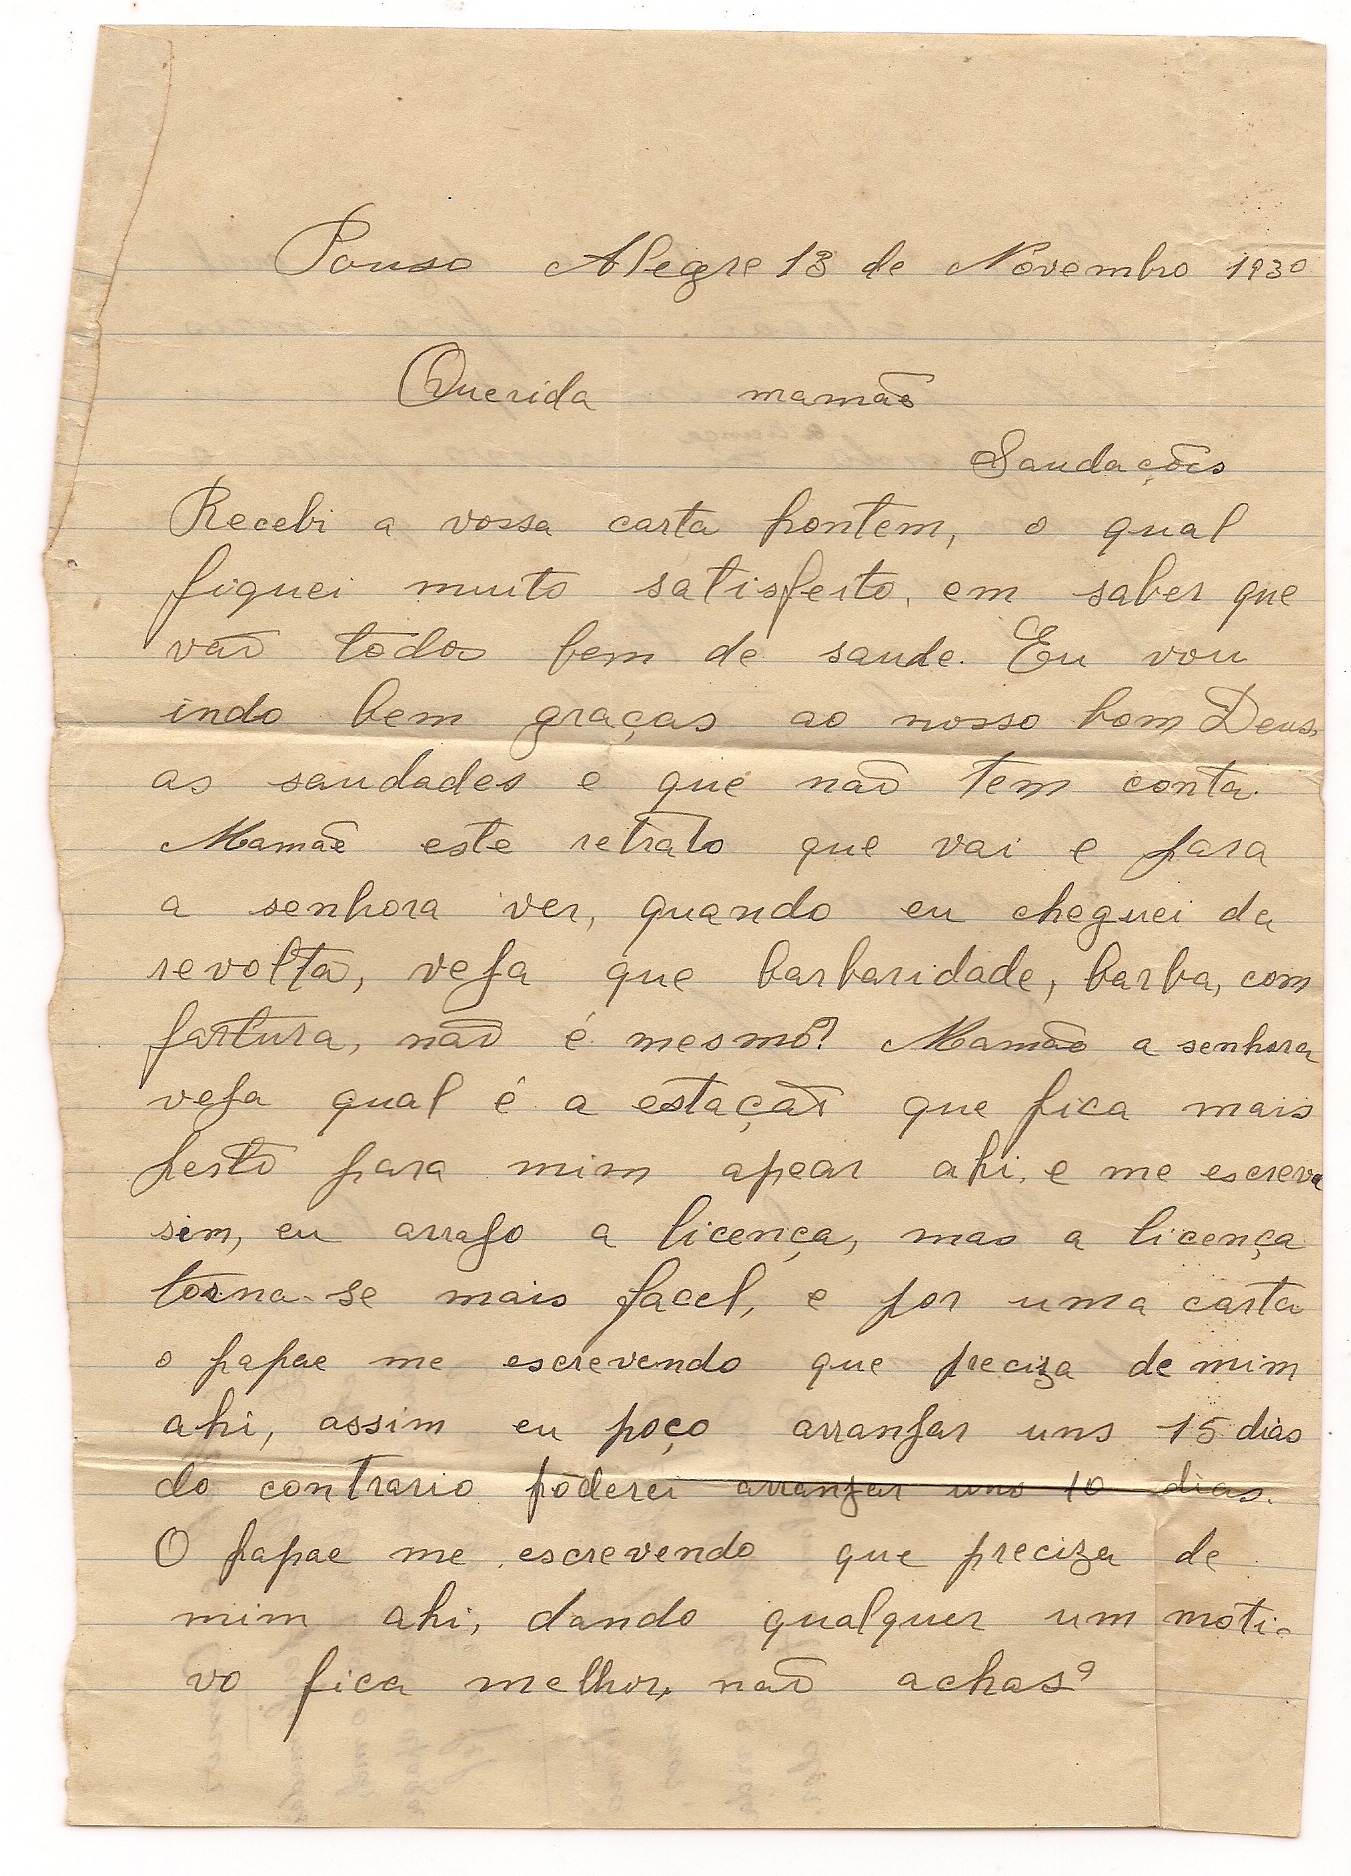 Pouso Alegre 13 de Novembro 1930
Querida mamãe
Saudações
Recebi a vossa carta hontem, o qual
fiquei muito satisfeito, em saber que
vão todos bem de saude. Eu vou
indo bem graças ao nosso bom Deus,
as saudades e que não tem conta.
Mamãe este retrato que vai e para
a senhora ver, quando eu cheguei da
revolta, veja que barbaridade, barba, com
fartura, não é mesmo? Mamãe a senhora
veja qual é a estação que fica mais
perto para mim apear ahi, e me escreva
sim, eu arrajo a licença, mas a licença
torna-se mais facel, e por uma carta
o papae me escrevendo que preciza de mim
ahi, assim eu poço arranjar uns 15 dias
do contrario poderei arranjar uns 10 dias.
O papae me escrevendo que preciza de
mim ahi, dando qualquer um moti-
vo fica melhor, não achas?